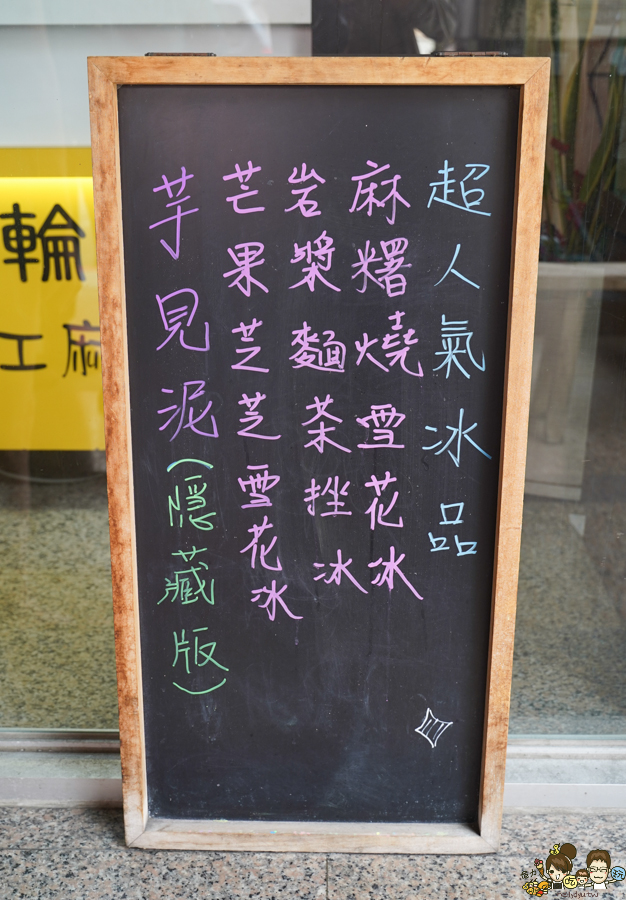 超人氣冰品
麻糬燒雪花冰
岩漿麵茶挫冰
芒果芝芝雪花冰
芋見泥(隱藏版)
輪
工麻